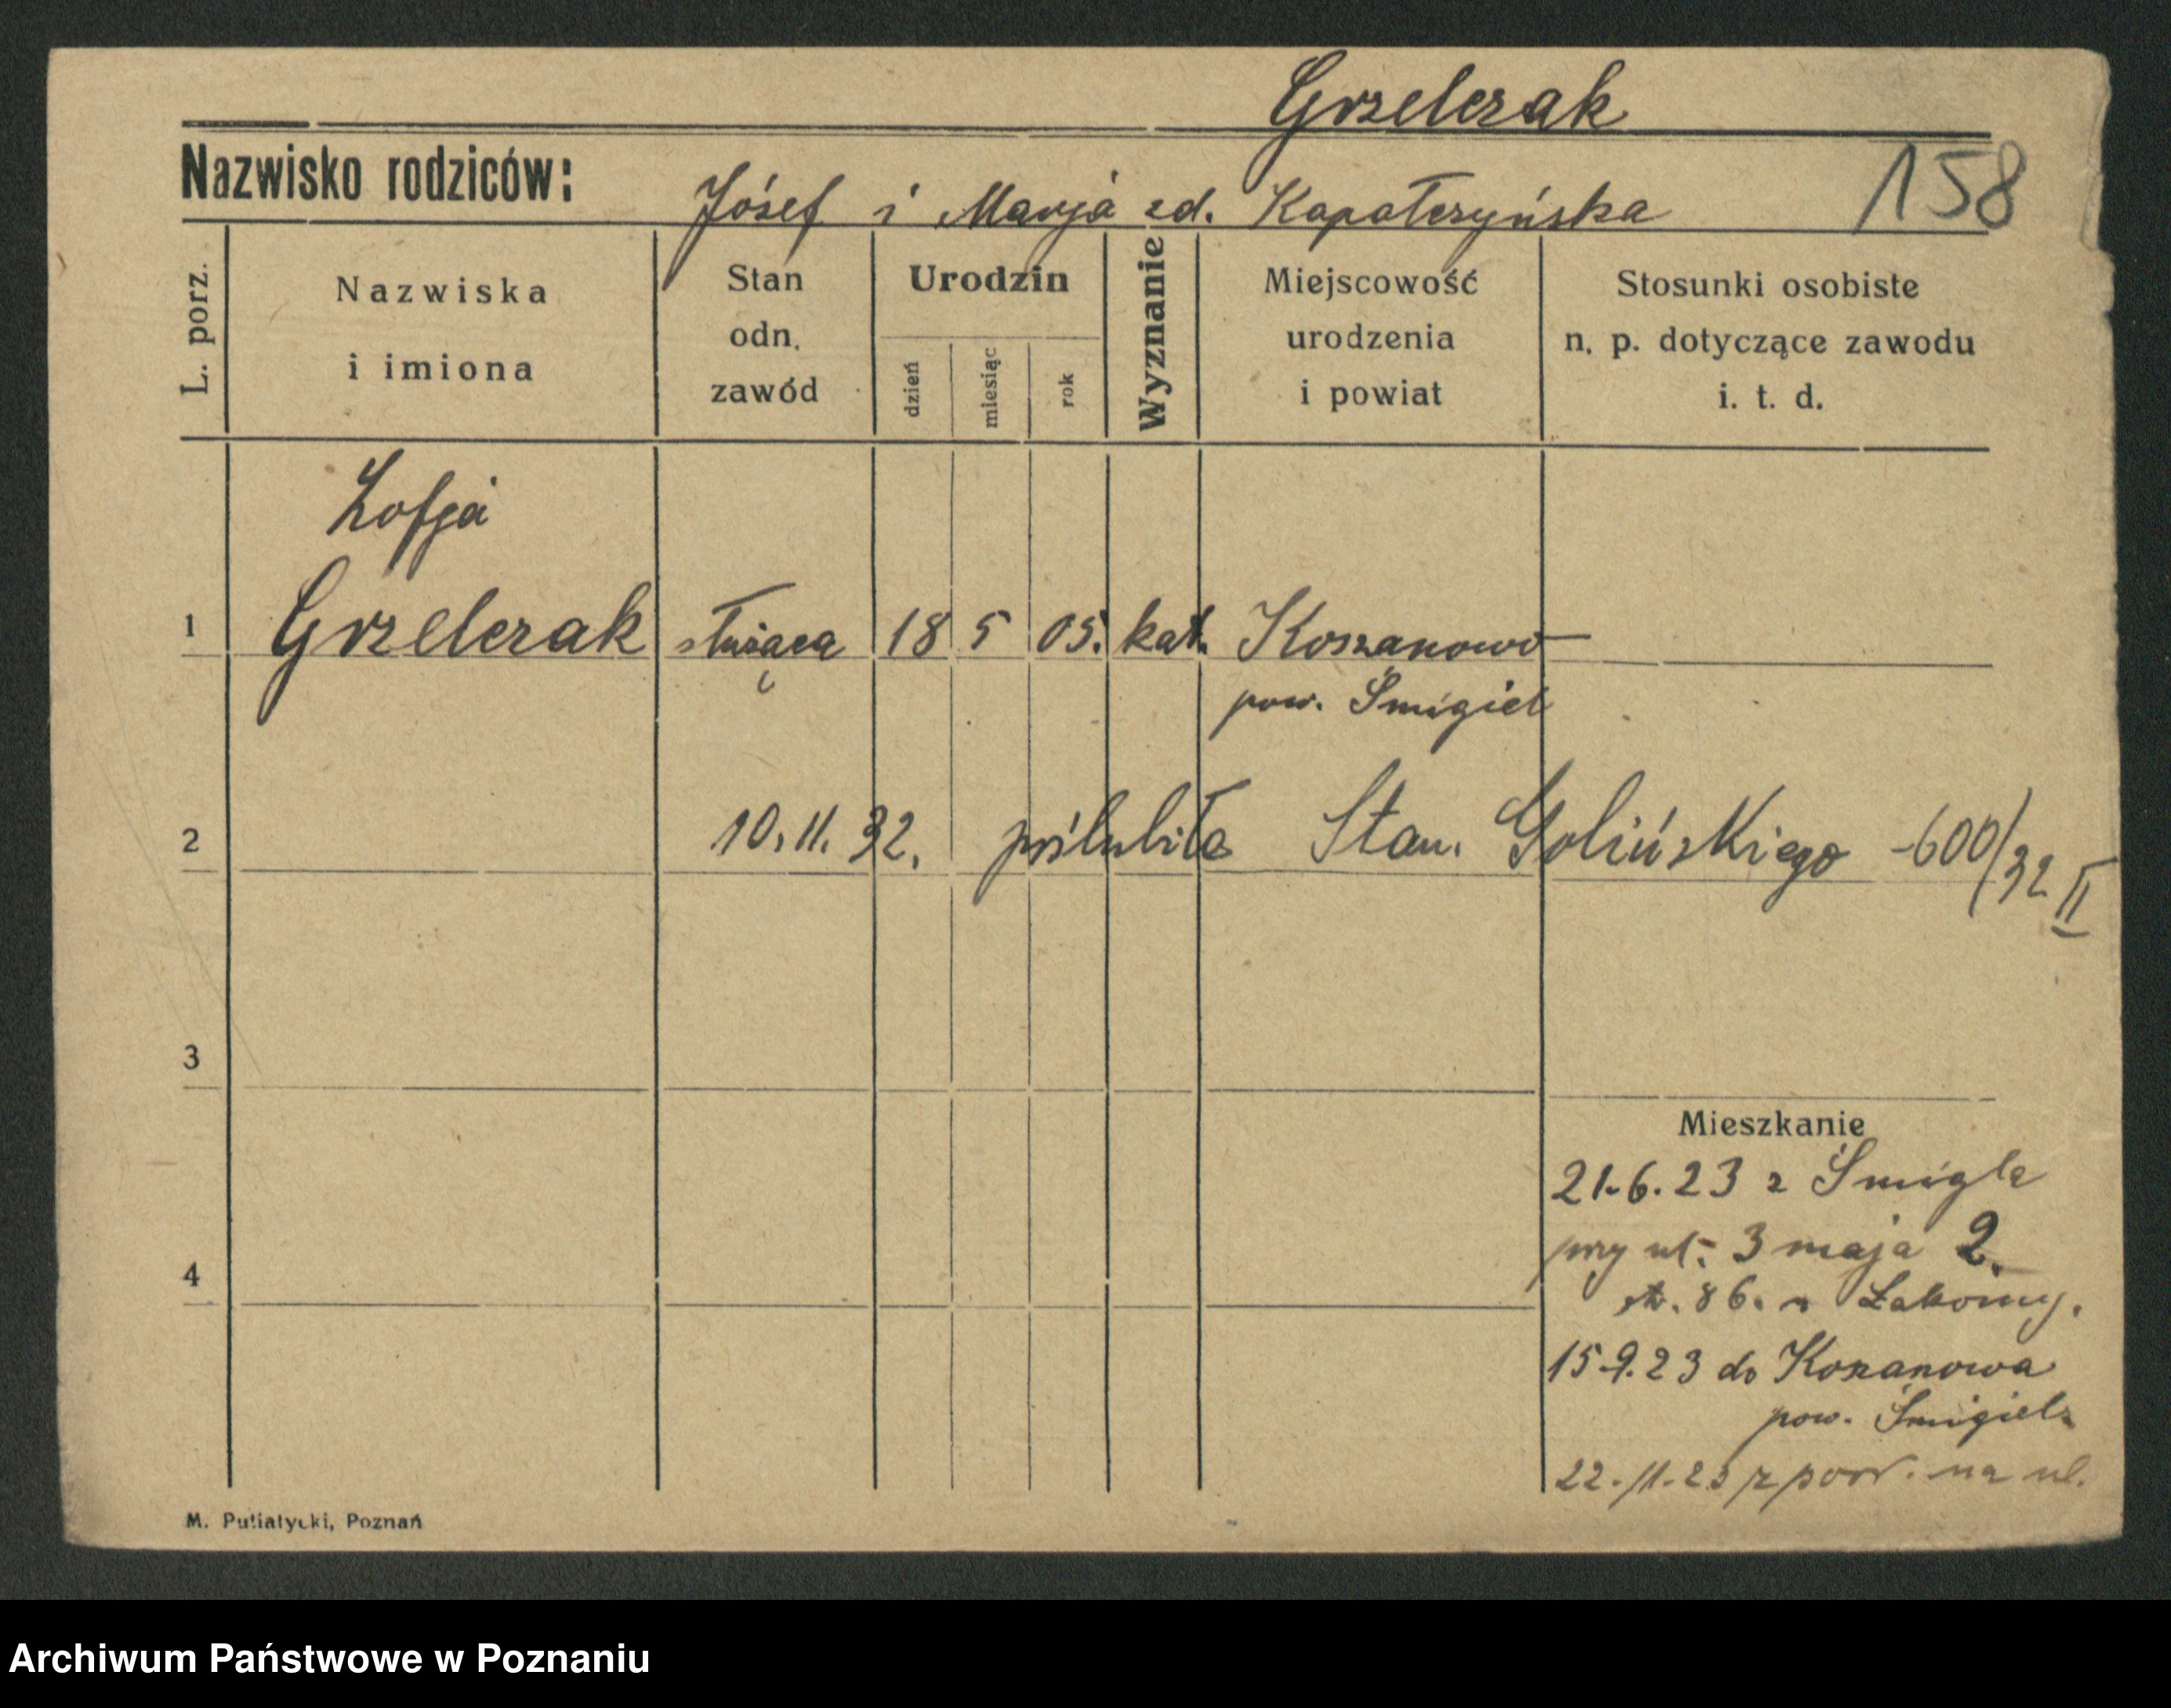 Grzelczak
158
Nazwisko rodziców:
Józef i Marja zd. Kapałczyńska
L. porz.
Nazwiska
i imiona
Stan
odn.
zawód
Urodzin
dzień
miesiąc
rok
Wyznanie
Miejscowość
urodzenia
i powiat
Stosunki osobiste
n. p. dotyczące zawodu
i. t. d.
Zofja
1 Grzelczak służąca 18 5 05. kat. Koszanowo
pow. Śmigiel
2 10.11.32. poślubiła Stan. Golińskiego -600/32 II
3
Mieszkanie
21.6.23 z Śmigla
przy ul. 3 maja 2.
86. Łakomy.
4
15.9.23 do Koszanowa
pow. Śmigiel
22.11.23 z pow. na ul.
M. Putiatycki, Poznań
Archiwum Państwowe w Poznaniu